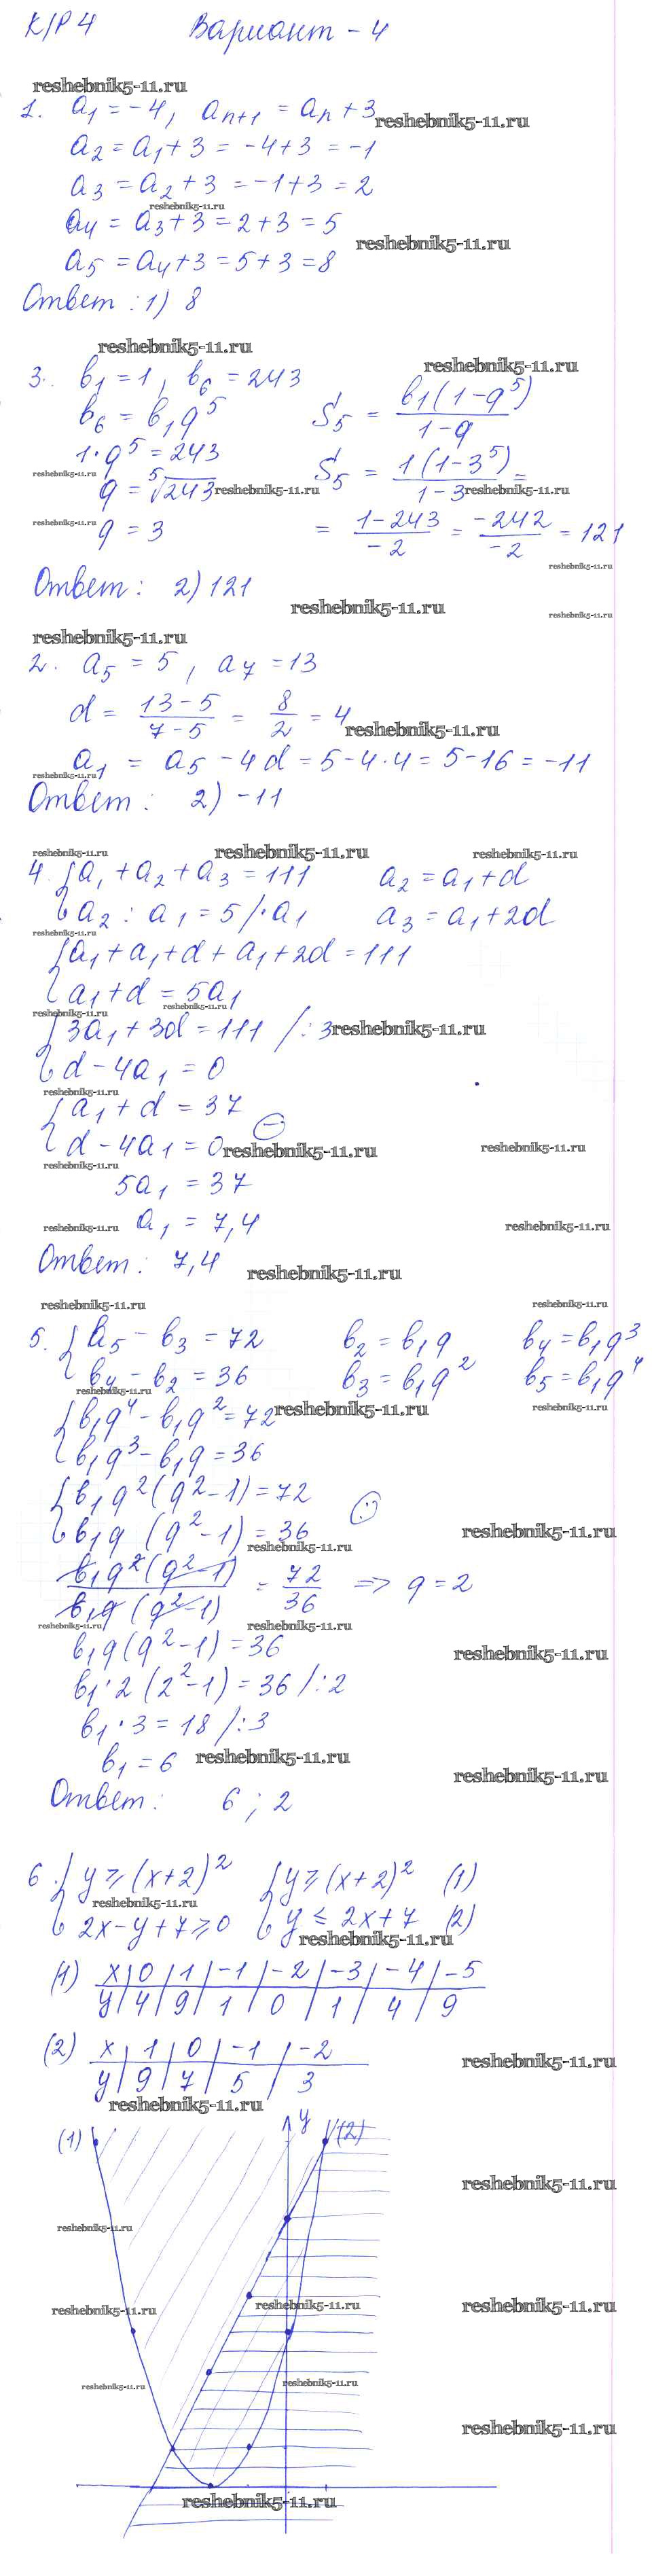 К/Р 4 Вариант - 4
reshebnik5-11.ru
1. a₁ = -4, aₙ₊₁ = aₙ + 3
reshebnik5-11.ru
a₂ = a₁ + 3 = -4 + 3 = -1
a₃ = a₂ + 3 = -1 + 3 = 2
reshebnik5-11.ru
a₄ = a₃ + 3 = 2 + 3 = 5
reshebnik5-11.ru
a₅ = a₄ + 3 = 5 + 3 = 8
Ответ : 1) 8
reshebnik5-11.ru
reshebnik5-11.ru
3. b₁ = 1, b₆ = 243
b₆ = b₁q⁵ S₅ = b₁(1-q⁵) / 1-q
1·q⁵ = 243 S₅ = 1(1-3⁵) / 1-3 =
reshebnik5-11.ru
q = ⁵√243 reshebnik5-11.ru reshebnik5-11.ru
reshebnik5-11.ru
q = 3 = 1-243 / -2 = -242 / -2 = 121
reshebnik5-11.ru
Ответ : 2) 121
reshebnik5-11.ru reshebnik5-11.ru
reshebnik5-11.ru
2. a₅ = 5, a₇ = 13
d = 13-5 / 7-5 = 8 / 2 = 4
reshebnik5-11.ru
a₁ = a₅ - 4d = 5 - 4·4 = 5 - 16 = -11
reshebnik5-11.ru
Ответ : 2) -11
reshebnik5-11.ru reshebnik5-11.ru reshebnik5-11.ru
4. { a₁ + a₂ + a₃ = 111 a₂ = a₁ + d
a₂ : a₁ = 5 /·a₁ a₃ = a₁ + 2d
reshebnik5-11.ru
{ a₁ + a₁ + d + a₁ + 2d = 111
a₁ + d = 5a₁
reshebnik5-11.ru
reshebnik5-11.ru
{ 3a₁ + 3d = 111 /:3 reshebnik5-11.ru
d - 4a₁ = 0
reshebnik5-11.ru
{ a₁ + d = 37
(-)
d - 4a₁ = 0 reshebnik5-11.ru reshebnik5-11.ru
reshebnik5-11.ru
5a₁ = 37
reshebnik5-11.ru a₁ = 7,4 reshebnik5-11.ru
Ответ : 7,4 reshebnik5-11.ru
reshebnik5-11.ru reshebnik5-11.ru
5. { b₅ - b₃ = 72 b₂ = b₁q b₄ = b₁q³
b₄ - b₂ = 36 b₃ = b₁q² b₅ = b₁q⁴
reshebnik5-11.ru
{ b₁q⁴ - b₁q² = 72 reshebnik5-11.ru reshebnik5-11.ru
b₁q³ - b₁q = 36
{ b₁q²(q²-1) = 72
(:)
b₁q (q²-1) = 36 reshebnik5-11.ru
reshebnik5-11.ru
b₁q²(q²-1) / b₁q(q²-1) = 72 / 36 => q = 2
reshebnik5-11.ru reshebnik5-11.ru
b₁q(q²-1) = 36 reshebnik5-11.ru
b₁·2(2²-1) = 36 /:2
b₁·3 = 18 /:3
b₁ = 6 reshebnik5-11.ru
reshebnik5-11.ru
Ответ : 6 ; 2
6. { y ≥ (x+2)² { y ≥ (x+2)² (1)
reshebnik5-11.ru
2x - y + 7 ≥ 0 y ≤ 2x + 7 (2)
reshebnik5-11.ru
(1) x | 0 | 1 | -1 | -2 | -3 | -4 | -5
y | 4 | 9 | 1 | 0 | 1 | 4 | 9
(2) x | 1 | 0 | -1 | -2
reshebnik5-11.ru
y | 9 | 7 | 5 | 3
reshebnik5-11.ru
y
(1) (2)
reshebnik5-11.ru
reshebnik5-11.ru
reshebnik5-11.ru reshebnik5-11.ru reshebnik5-11.ru
reshebnik5-11.ru reshebnik5-11.ru
reshebnik5-11.ru
reshebnik5-11.ru